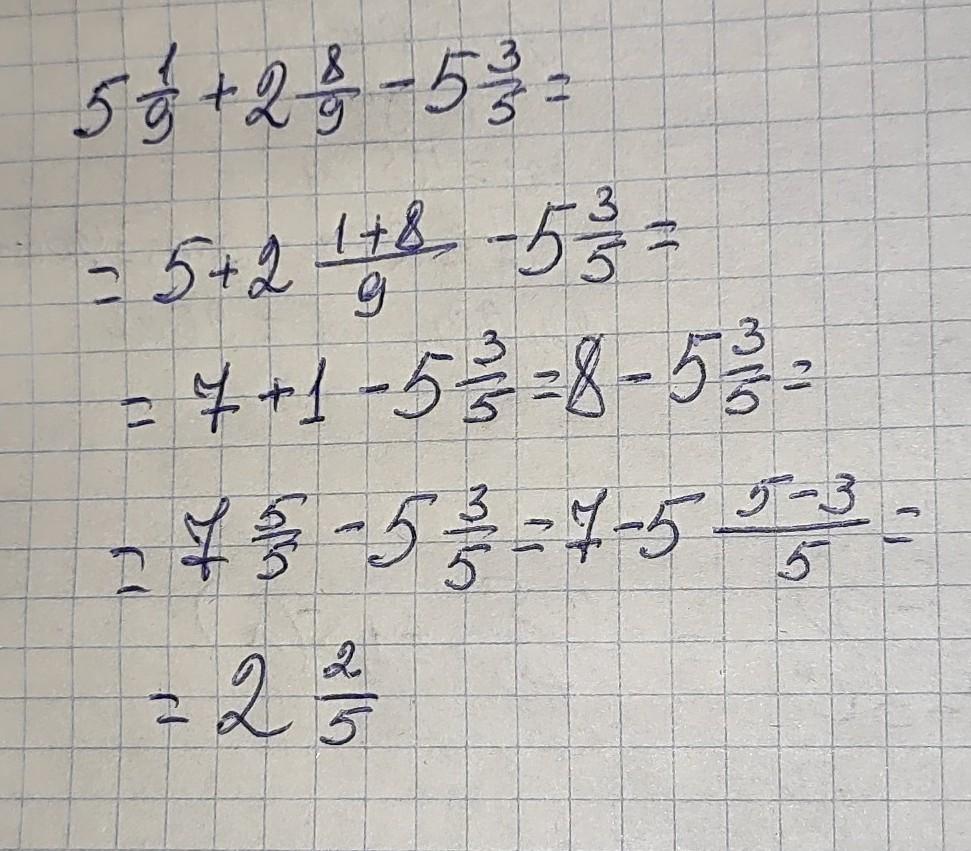 5 1/9 + 2 8/9 - 5 3/5 =
= 5+2 (1+8)/9 - 5 3/5 =
= 7 + 1 - 5 3/5 = 8 - 5 3/5 =
= 7 5/5 - 5 3/5 = 7 - 5 (5-3)/5 =
= 2 2/5